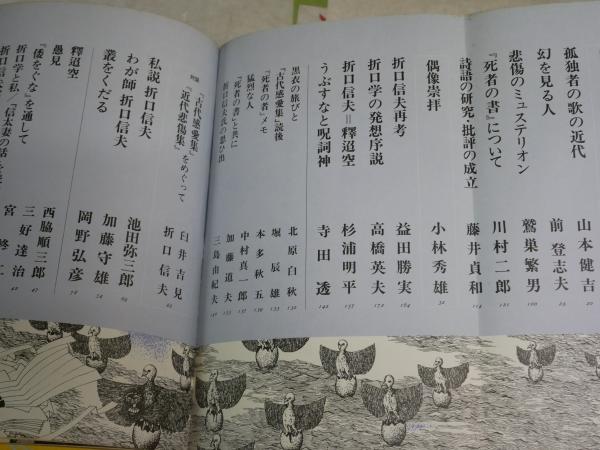 孤独者の歌の近代 山本健吉 20
幻を見る人 前登志夫 25
悲傷のミュステリオン 鷲巣繁男 100
『死者の書』について 川村二郎 121
詩語の研究・批評の成立 藤井貞和 114
偶像崇拝 小林秀雄 32
折口信夫再考 益田勝実 164
折口学の発想序説 高橋英夫 172
折口信夫=釋迢空 杉浦明平 137
うぶすなと呪詞神 寺田透 142
黒衣の旅びと 北原白秋 130
『古代感愛集』読後 堀辰雄 133
『死者の書』メモ 本多秋五 134
猛烈な人 中村真一郎 137
『死者の書』と共に 加藤道夫 135
折口信夫氏の思ひ出 三島由紀夫 140
対談
『古代感愛集』『近代悲傷集』をめぐって 臼井吉見 折口信夫 62
私説 折口信夫 池田弥三郎 69
わが師 折口信夫 加藤守雄 74
叢をくだる 岡野弘彦 78
釋迢空 西脇順三郎 47
愚見 三好達治 42
『倭をぐな』を通して 宮柊二
折口学と私/『信太妻の話』を
折口信夫